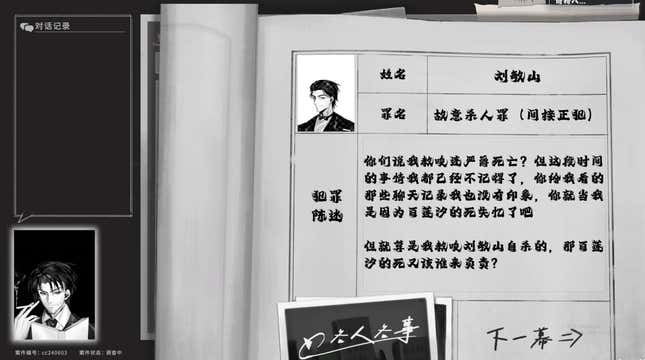 对话记录
姓名
刘敏山
罪名
故意杀人罪（间接正犯）
犯罪
陈述
你们说我教唆逃严落死亡？但这段时间
的事情我都已经不记得了，你给我看的
那些聊天记录我也没有印象，你就当我
是因为百莲汐的死失忆了吧
但就算是我教唆刘敏山自杀的，那百莲
汐的死又该谁来负责？
下一幕
案件编号：cc240603
案件状态：调查中